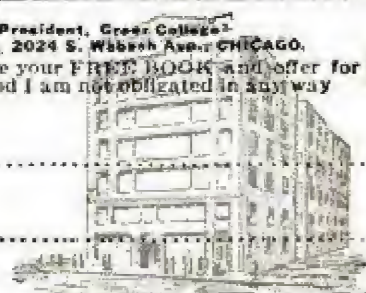 President, Greer College
2024 S. Wabash Ave., CHICAGO.
e your FREE BOOK and offer for
d I am not obligated in any way